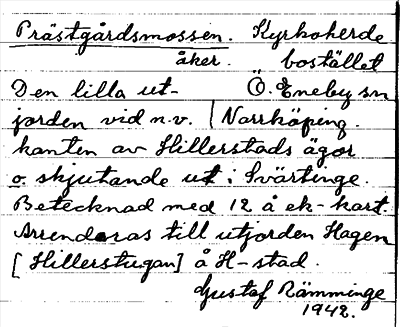 Prästgårdsmossen. Kyrkoherde
åker. bostället
Den lilla ut- Ö. Eneby sn
jorden vid n.v. | Norrköping.
kanten av Hillerstads ägor
o. skjutande ut i Svärtinge.
Betecknad med 12 å ek-kart.
Arrenderas till utjorden Hagen
[Hillerstugan] å H-stad.
Gustaf Rämminge
1942.